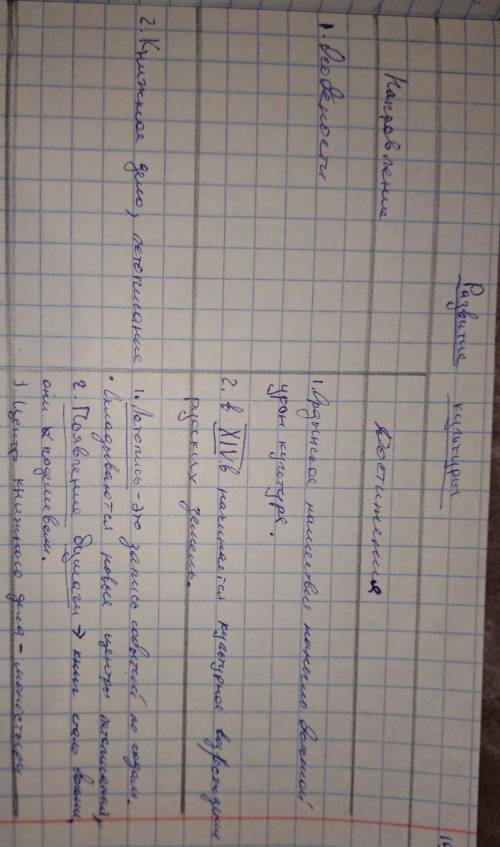 Развитие культуры
Направление
Достижения
1. Особеность
1. Ордынское нашествия нанесло
урон культуре.
2. в XIVв начинается культурное возрождение
русских земель.
2. Книжное дело, летописание
1. Летопись - это запись событий по годам.
• Складываются новые центры летописания,
2. Появление бумаги → книг стало
они подешевели.
3 Центр книжного дела - монастыри